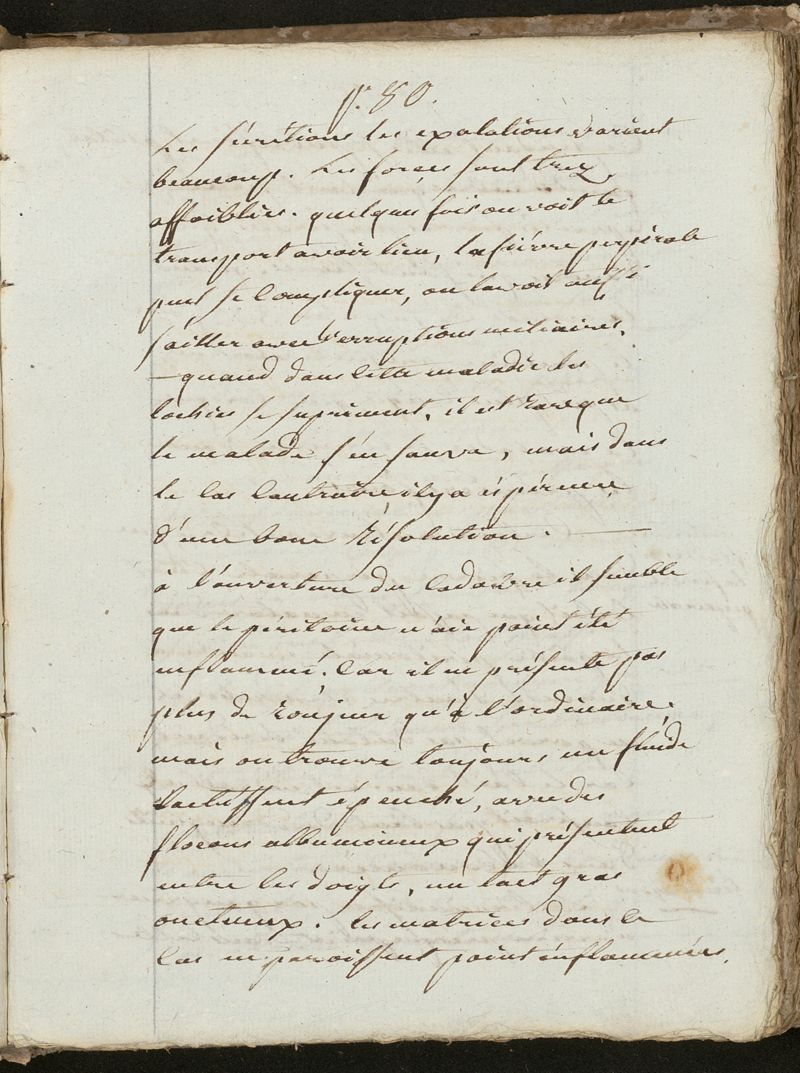 p. 80.
Les sécrétions les exalations varient
beaucoup. Les forces sont trez
affoiblies. quelques fois on voit le
transport avoir lieu, la fièvre perpérale
peut se compliquer, on la voit aussi
s'allier avec l'erruptions miliaires.
— quand dans cette maladie les
lochies se supriment, il est rare que
le malade s'en sauve, mais dans
le cas contraire il y a espérence
d'une bone résolution. —
à l'ouverture du cadavre il semble
que le péritoine n'aie point été
inflammé. Car il ne présente pas
plus de roujeur qu'à l'ordinaire.
mais on trouve toujours un fluide
lactessent épenché, avec des
flocons albumineux qui présentent
entre les doigts, un tact gras
onctueux. les matrices dans ce
cas ne paroissent point enflammées.